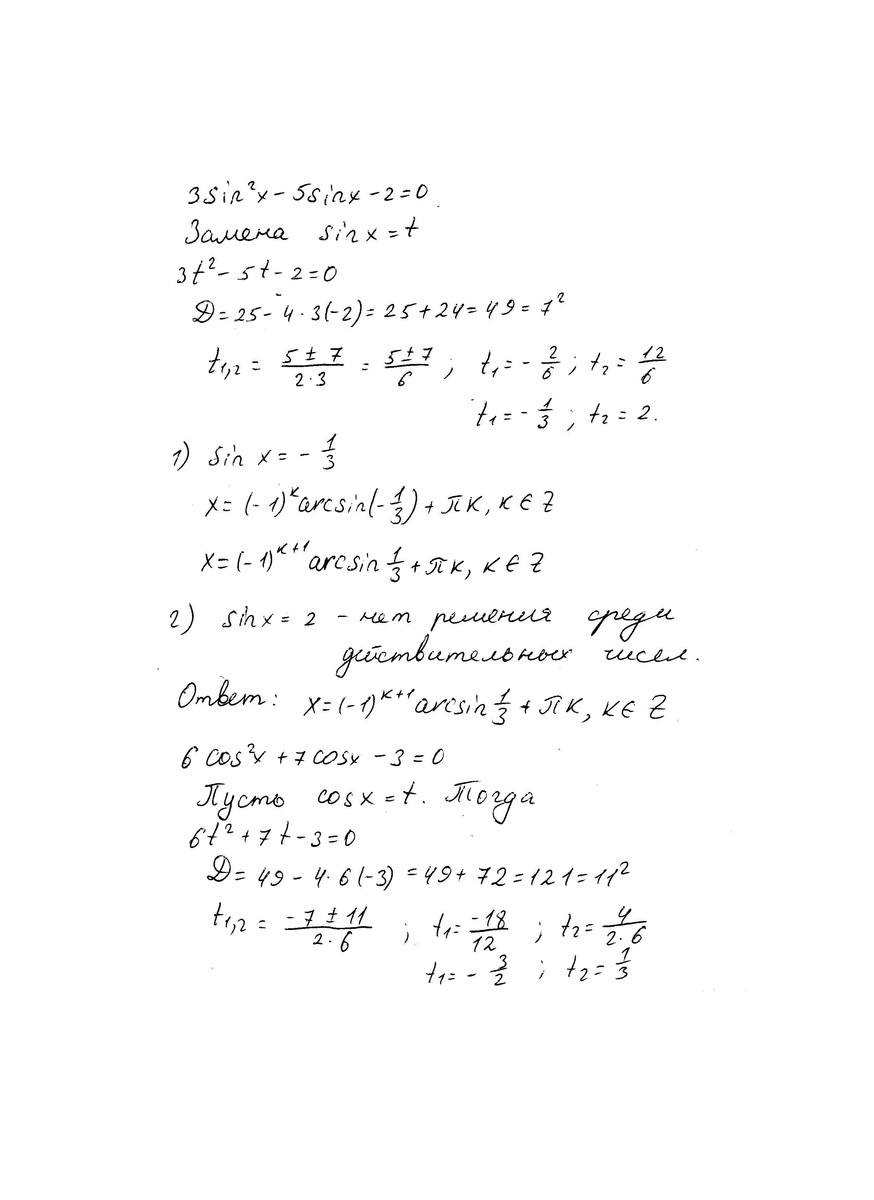 3sin²x - 5sinx - 2 = 0
Замена sinx = t
3t² - 5t - 2 = 0
D = 25 - 4·3(-2) = 25 + 24 = 49 = 7²
t₁,₂ = (5 ± 7)/(2·3) = (5 ± 7)/6 ; t₁ = - 2/6 ; t₂ = 12/6
t₁ = - 1/3 ; t₂ = 2.
1) sin x = - 1/3
x = (-1)ᵏ arcsin(-1/3) + πк, к ∈ Z
x = (-1)ᵏ⁺¹ arcsin 1/3 + πк, к ∈ Z
2) sinx = 2 - нет решения среди
действительных чисел.
Ответ: x = (-1)ᵏ⁺¹ arcsin 1/3 + πк, к ∈ Z
6 cos²x + 7 cosx - 3 = 0
Пусть cosx = t. Тогда
6t² + 7t - 3 = 0
D = 49 - 4·6(-3) = 49 + 72 = 121 = 11²
t₁,₂ = (-7 ± 11)/(2·6) ; t₁ = -18/12 ; t₂ = 4/(2·6)
t₁ = - 3/2 ; t₂ = 1/3